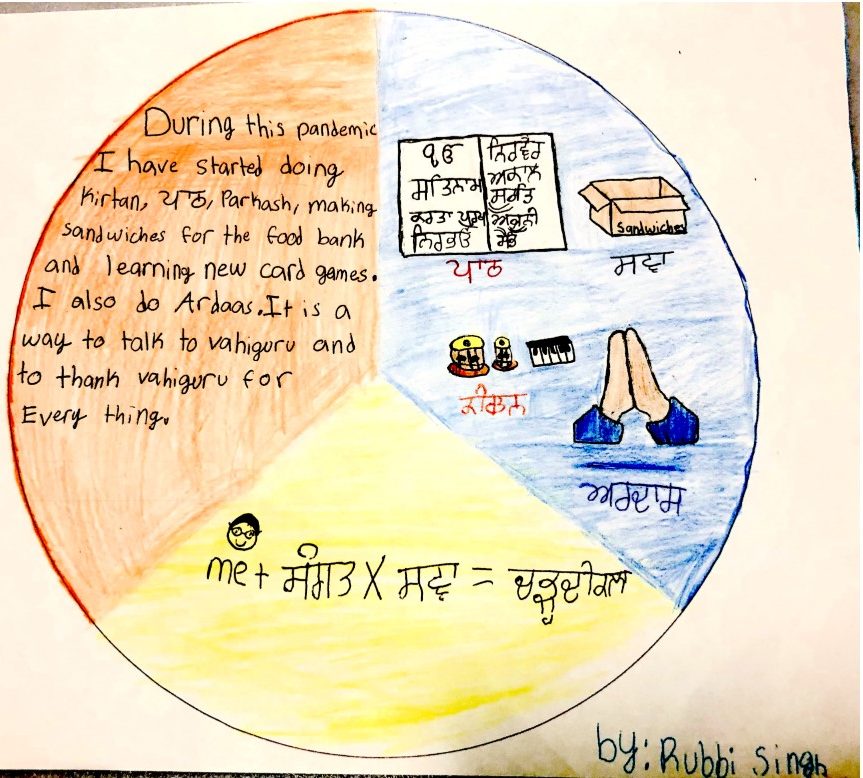 During this pandemic
I have started doing
Kirtan, ਪਾਠ, Parkash, making
sandwiches for the food bank
and learning new card games.
I also do Ardaas. It is a
way to talk to vahiguru and
to thank vahiguru for
Every thing.
ੴ
ਸਤਿਨਾਮ
ਕਰਤਾ ਪੁਰਖ
ਨਿਰਭਉ
ਨਿਰਵੈਰ
ਅਕਾਲ
ਮੂਰਤਿ
ਅਜੂਨੀ
ਸੈਭੰ
ਪਾਠ
Sandwiches
ਸਵਾ
ਕੀਰਤਨ
ਅਰਦਾਸ
me + ਸੰਗਤ X ਸਵਾ = ਚੜ੍ਹਦੀਕਲਾ
by: Rubbi Singh